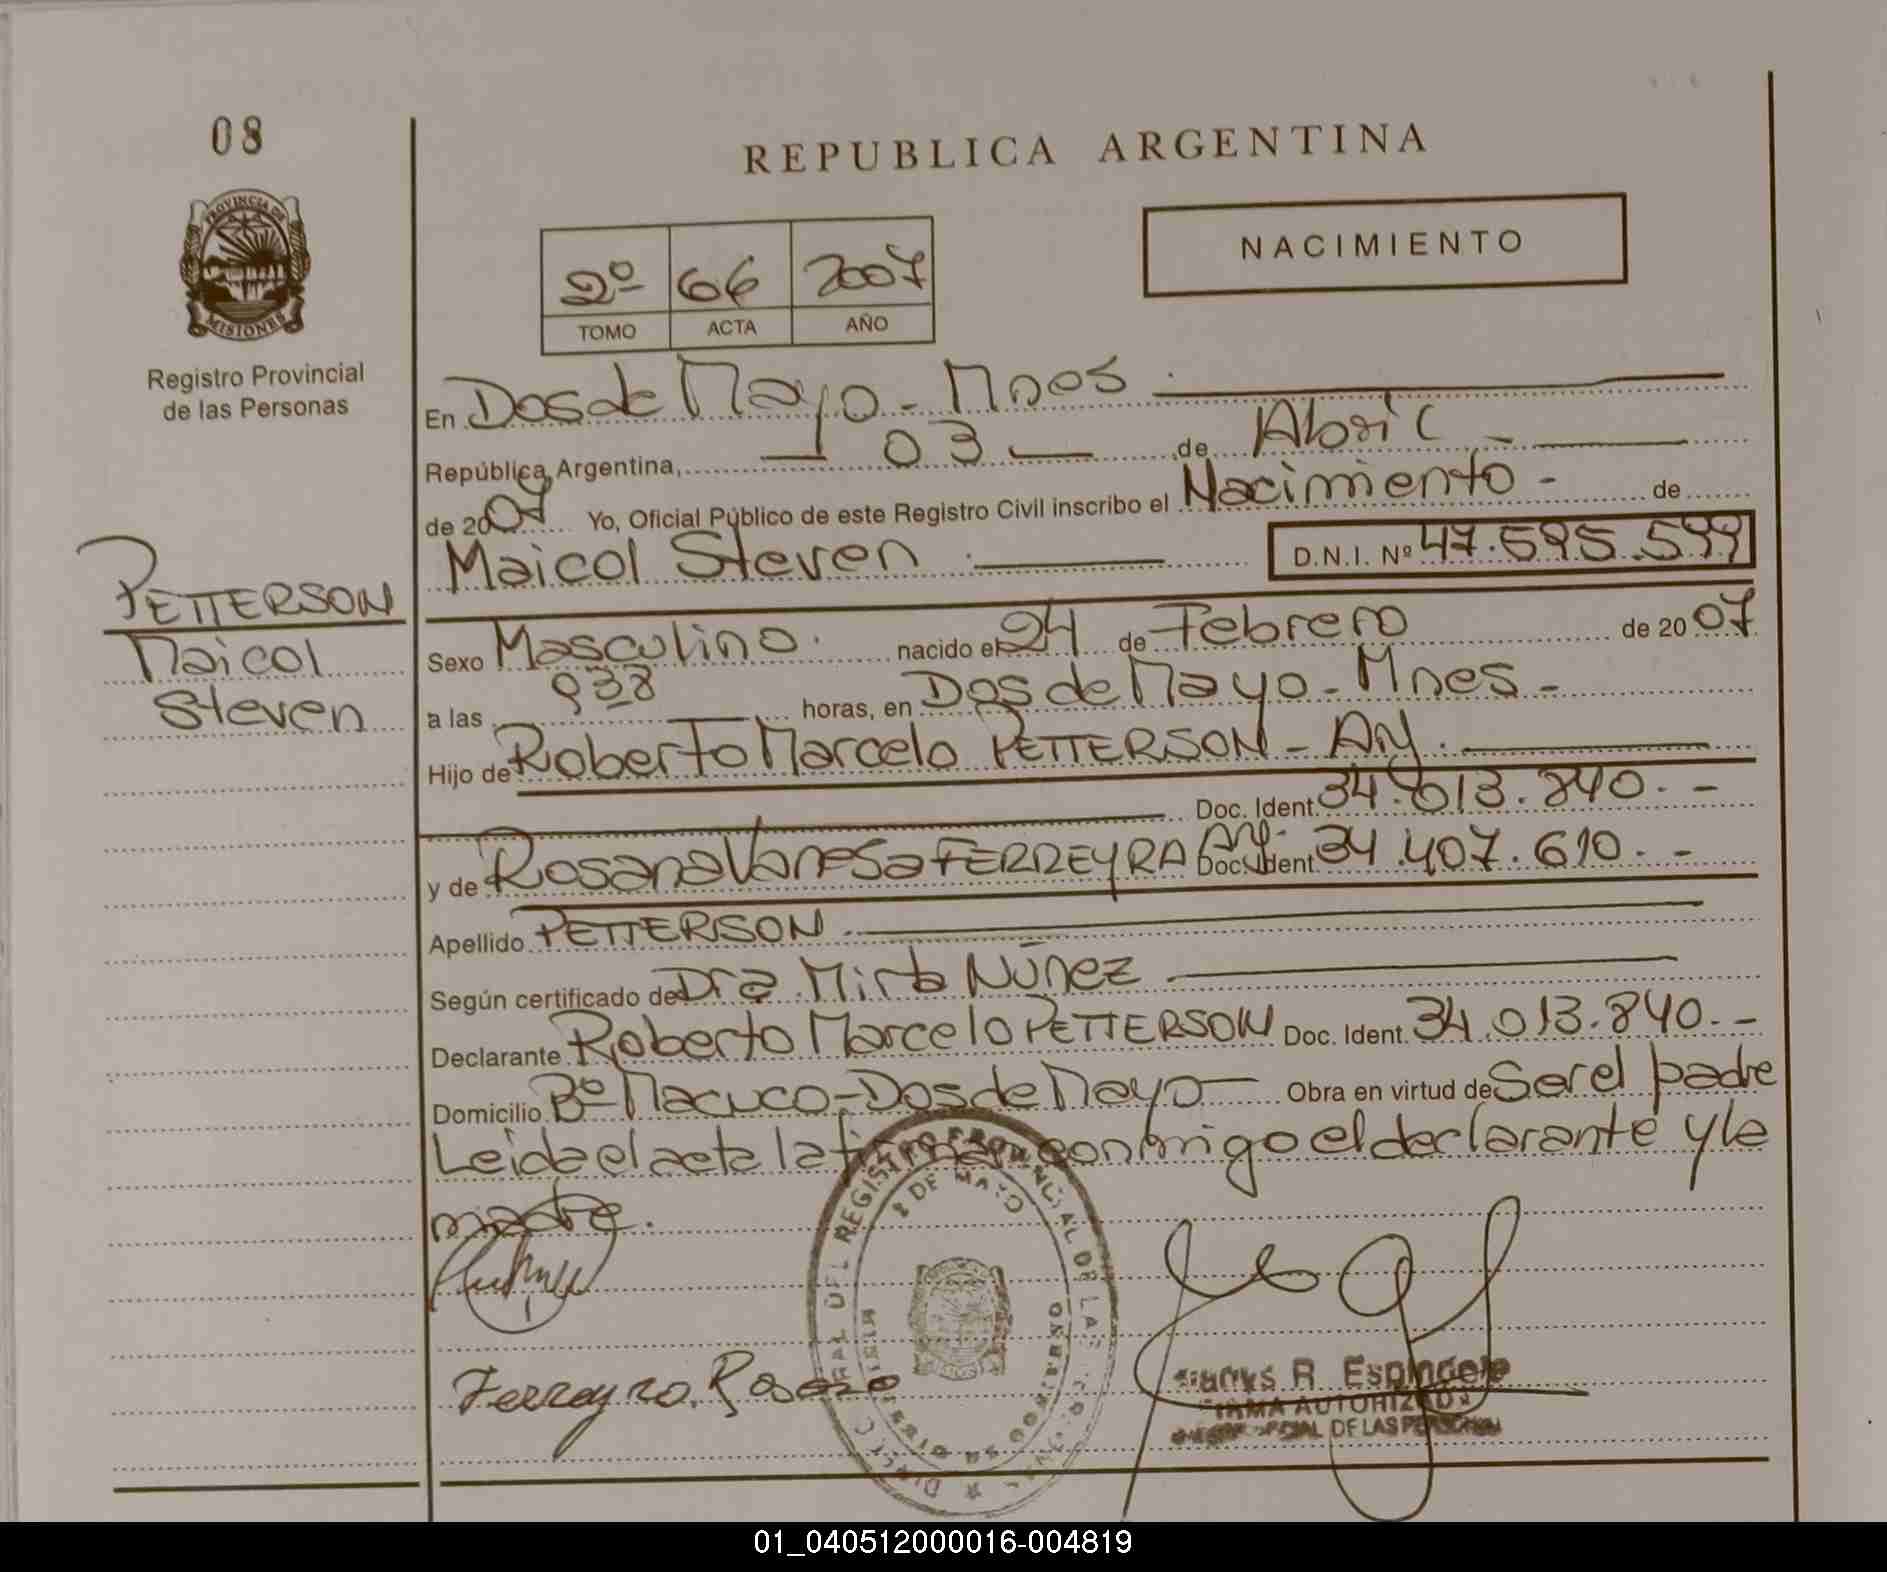 08
REPUBLICA ARGENTINA
PROVINCIA DE
MISIONES
Registro Provincial
de las Personas
NACIMIENTO
2º 66 2007
TOMO ACTA AÑO
En Dos de Mayo - Mnes
República Argentina, 03 de Abril
de 2007 Yo, Oficial Público de este Registro Civil inscribo el Nacimiento - de
Maicol Steven D.N.I. Nº 47.595.599
PETTERSON
Maicol
Steven
Sexo Masculino. nacido el 24 de Febrero de 2007
a las 938 horas, en Dos de Mayo - Mnes -
Hijo de Roberto Marcelo PETTERSON - Arg.
Doc. Ident. 34.013.840.-
y de Rosana Vanesa FERREYRA Arg. Doc. Ident. 34.407.610.-
Apellido PETTERSON
Según certificado de Dra Mirta Núñez
Declarante Roberto Marcelo PETTERSON Doc. Ident. 34.013.840.-
Domicilio Bº Macuco - Dos de Mayo Obra en virtud de Ser el padre
Leida el acta la firman conmigo el declarante y la
madre.
REGISTRO PROVINCIAL DE LAS
2 DE MAYO
MISIONES
Ferreyra Rosana
R. Espindola
FIRMA AUTORIZADA
DE LAS PERSONAS
01_040512000016-004819